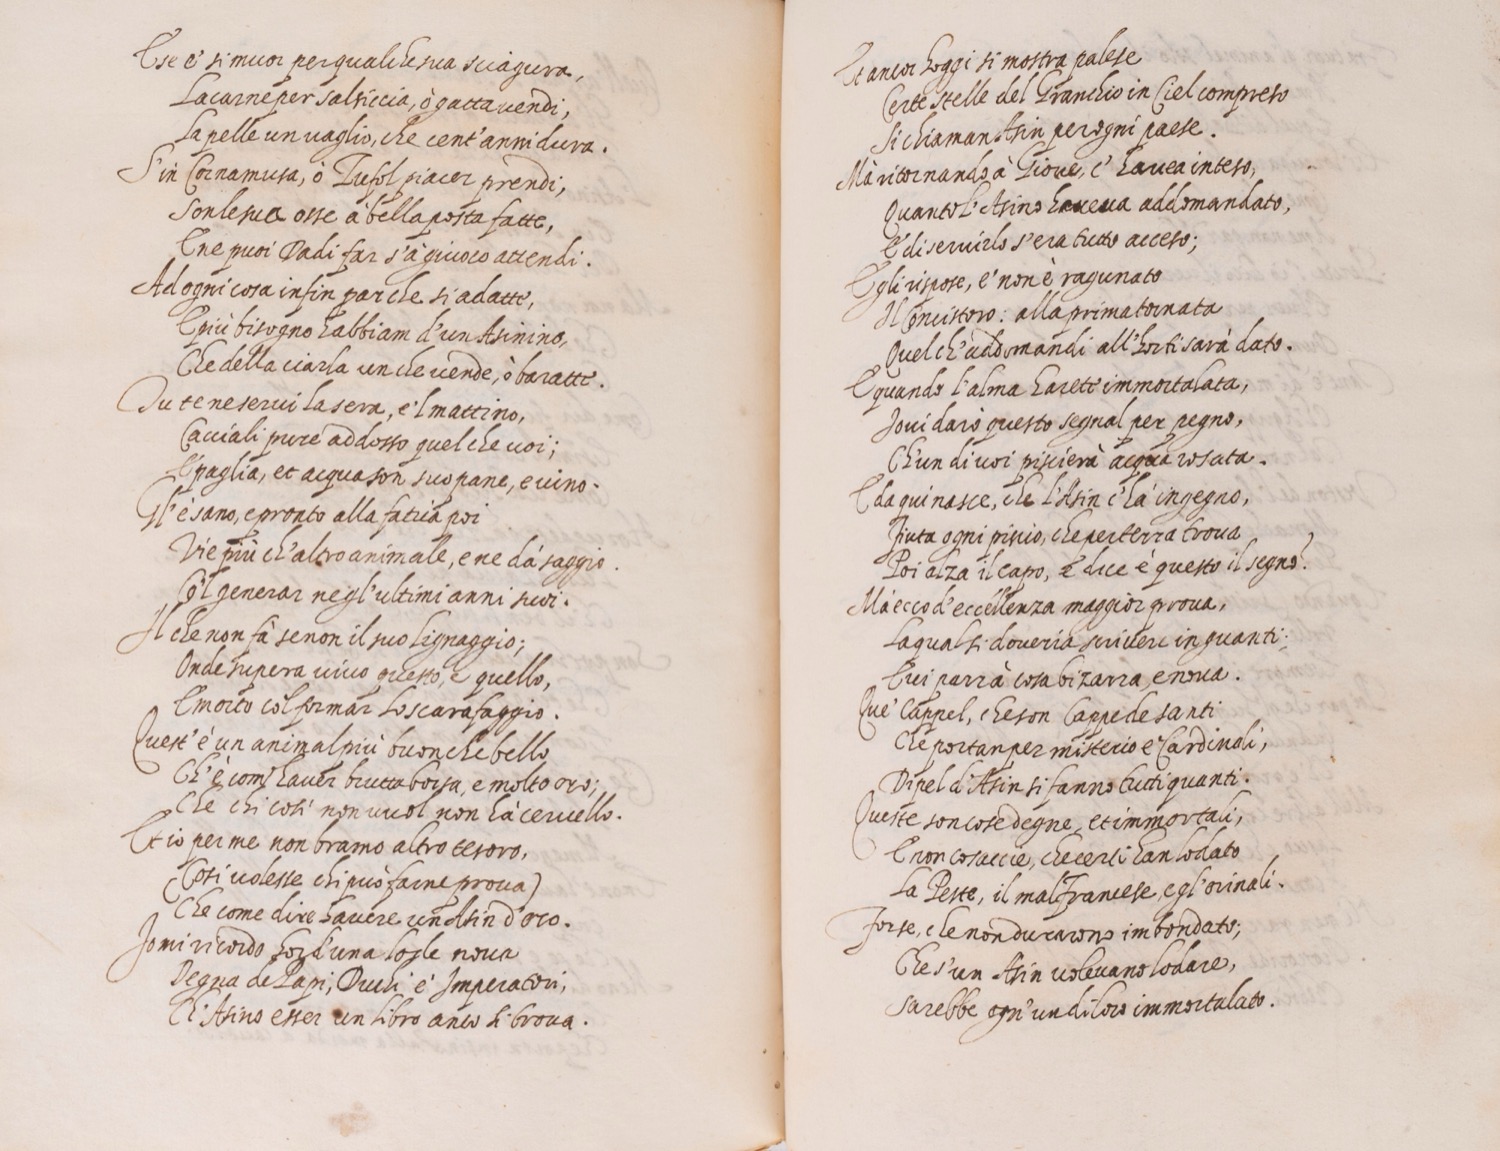 E se e' si muor per qualche sua sciagura,
La carne per salsiccia, ò gatta vendi,
La pelle un vaglio, che cent'anni dura.
S'in Cornamusa, ò Zufol piacer prendi,
Son le sue osse à bella posta fatte,
E ne puoi Dadi far s'à giuoco attendi.
Ad ogni cosa infin par che si adatte,
E più bisogno habbiam d'un Asinino,
Che della ciarla un che vende, ò baratte.
Tu te ne servi la sera, e'l mattino,
Cacciali pure addosso quel che voi;
E paglia, et acqua son suo pane, e vino.
Gl'è sano, e pronto alla fatica poi
Vie più ch'altro animale, e ne dà saggio.
Col generar negl'ultimi anni suoi.
Il che non fà se non il suo lignaggio;
Onde supera vivo questo, e quello,
E morto col formar lo scarafaggio.
Quest'è un animal più buon che bello
Ch'è com'haver brutta borsa, e molto oro;
Che chi così non vuol non hà cervello.
Et io per me non bramo altro tesoro,
(Così volesse chi può farne prova)
Che come dire havere un Asin d'oro.
Io mi ricordo hor d'una loggle nova
Degna de Papi, Duchi e' Imperatori,
Ch'Asino esser un libro anco si trova.
Et ancor hoggi si mostra palese
Certe stelle del Granchio in Ciel compreso
Si chiaman Asin per ogni paese.
Mà ritornando à Giove, c'havea inteso,
Quanto l'Asino haveva addomandato,
E di servirlo s'era tutto acceso;
Egli rispose, e' non è ragunato
Il Concistoro: alla prima tornata
Quel ch'addomandi all'horti sarà dato.
E quando l'alma harete immortalata,
Io vi darò questo segnal per pegno,
Ch'un di voi piscierà acqua rosata.
E da qui nasce, che l'Asin c'hà ingegno,
Fiuta ogni piscio, che per terra trova
Poi alza il capo, e dice è questo il segno?
Mà ecco d'eccellenza maggior prova,
La qual si doveria scrivere in quanti;
E vi parrà cosa bizarra, e nova.
Que' Cappel, che son Cappe de santi
Che portan per misterio e' Cardinali,
Di pel d'Asin si fanno tutti quanti.
Queste son cose degne, et immortali,
E non cosaccie, che certi han lodato
La Peste, il mal Francese, e gl'orinali.
Forse, che non durarono imbondato;
Che s'un Asin volevano lodare,
Sarebbe ogn'un di loro immortalato.